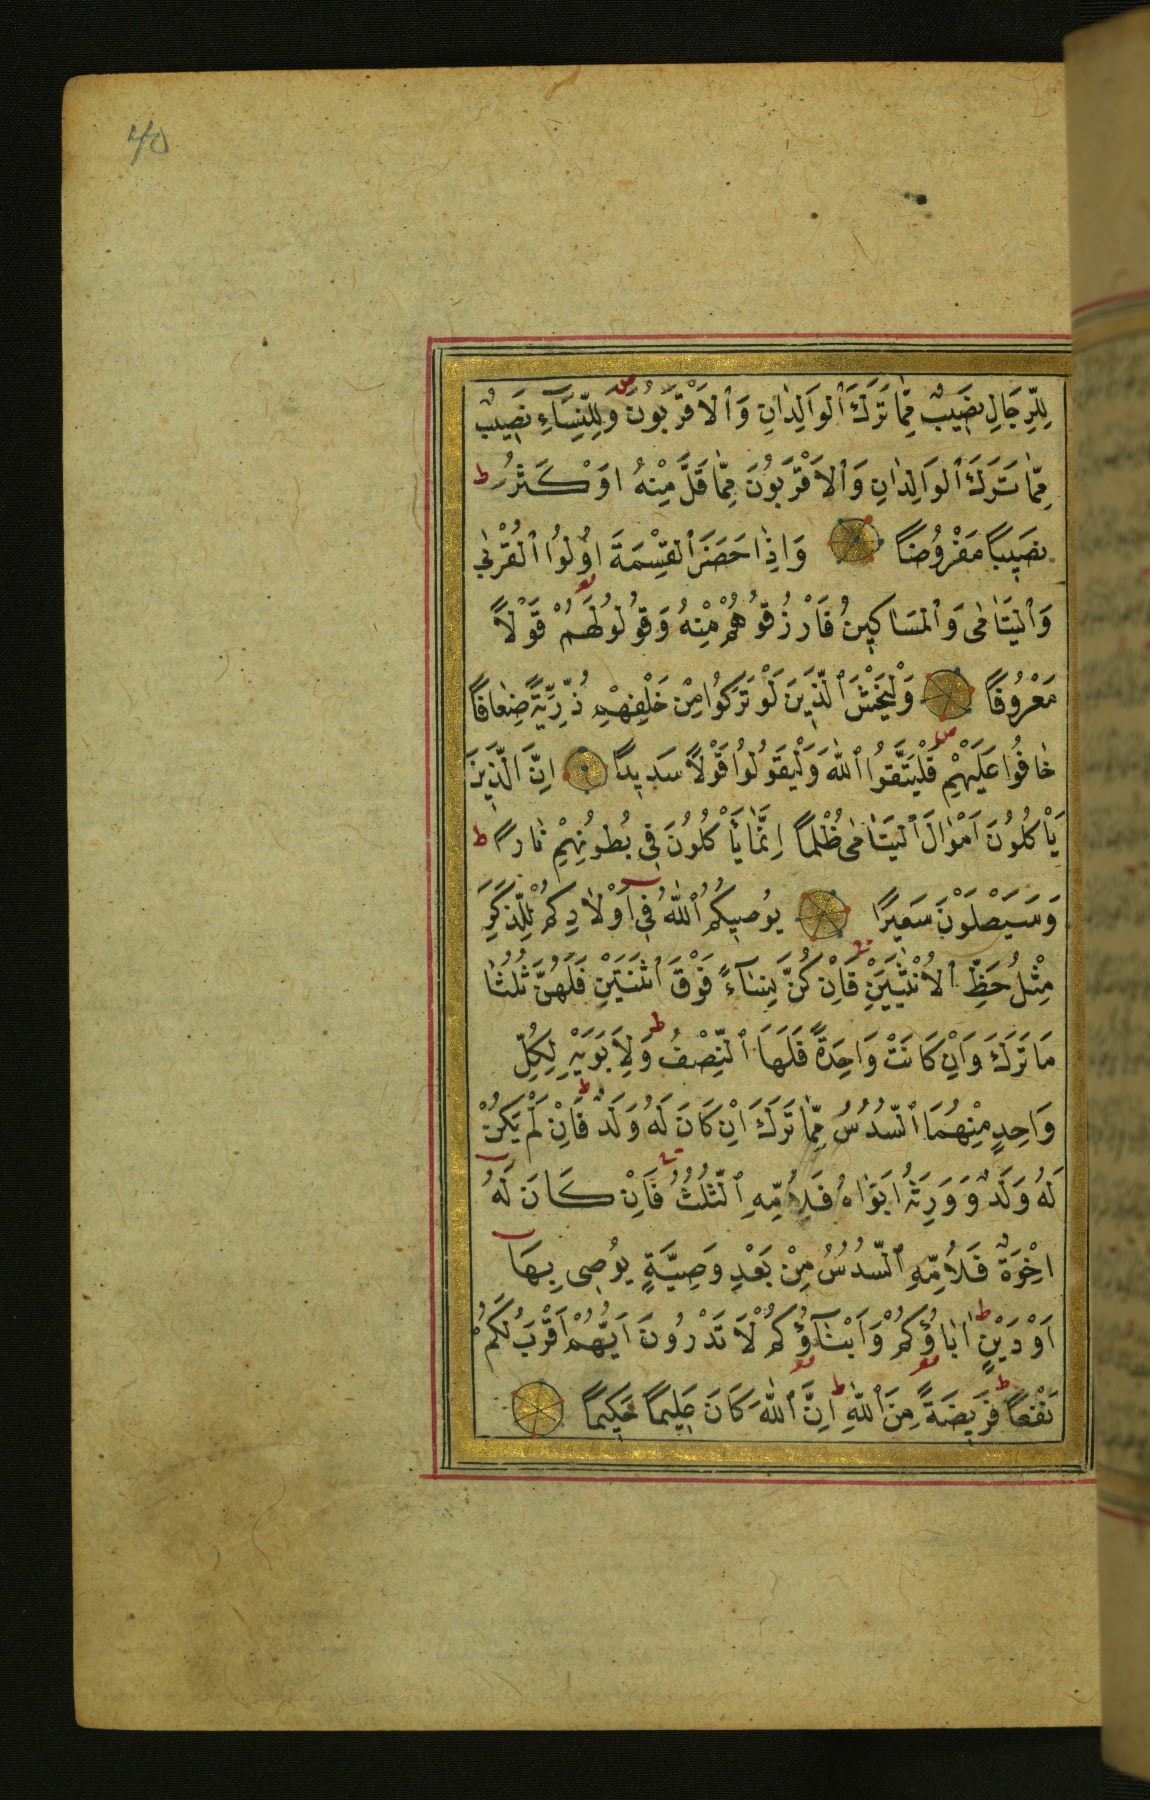 40
لِلرِّجَالِ نَصِيبٌ مِمَّا تَرَكَ ٱلْوَالِدَانِ وَٱلْاَقْرَبُونَ وَلِلنِّسَآءِ نَصِيبٌ
مِمَّا تَرَكَ ٱلْوَالِدَانِ وَٱلْاَقْرَبُونَ مِمَّا قَلَّ مِنْهُ اَوْ كَثُرَ ط
نَصِيبًا مَفْرُوضًا وَاِذَا حَضَرَ ٱلْقِسْمَةَ اُو۬لُوا ٱلْقُرْبٰى
وَٱلْيَتَامٰى وَٱلْمَسَاكِينُ فَارْزُقُوهُمْ مِنْهُ وَقُولُوا لَهُمْ قَوْلًا
مَعْرُوفًا وَلْيَخْشَ ٱلَّذِينَ لَوْ تَرَكُوا مِنْ خَلْفِهِمْ ذُرِّيَّةً ضِعَافًا
خَافُوا عَلَيْهِمْ فَلْيَتَّقُوا ٱللّٰهَ وَلْيَقُولُوا قَوْلًا سَدِيدًا اِنَّ ٱلَّذِينَ
يَأْكُلُونَ اَمْوَالَ ٱلْيَتَامٰى ظُلْمًا اِنَّمَا يَأْكُلُونَ فِى بُطُونِهِمْ نَارًا ط
وَسَيَصْلَوْنَ سَعِيرًا يُوصِيكُمُ ٱللّٰهُ فِى اَوْلَادِكُمْ لِلذَّكَرِ
مِثْلُ حَظِّ ٱلْاُنْثَيَيْنِ فَاِنْ كُنَّ نِسَآءً فَوْقَ ٱثْنَتَيْنِ فَلَهُنَّ ثُلُثَا
مَا تَرَكَ وَاِنْ كَانَتْ وَاحِدَةً فَلَهَا ٱلنِّصْفُ ط وَلِاَبَوَيْهِ لِكُلِّ
وَاحِدٍ مِنْهُمَا ٱلسُّدُسُ مِمَّا تَرَكَ اِنْ كَانَ لَهُ وَلَدٌ ط فَاِنْ لَمْ يَكُنْ
لَهُ وَلَدٌ وَوَرِثَهُ اَبَوَاهُ فَلِاُمِّهِ ٱلثُّلُثُ فَاِنْ كَانَ لَهُ
اِخْوَةٌ فَلِاُمِّهِ ٱلسُّدُسُ مِنْ بَعْدِ وَصِيَّةٍ يُوصِى بِهَا
اَوْ دَيْنٍ ط اٰبَاؤُكُمْ وَاَبْنَآؤُكُمْ لَا تَدْرُونَ اَيُّهُمْ اَقْرَبُ لَكُمْ
نَفْعًا ط فَرِيضَةً مِنَ ٱللّٰهِ ط اِنَّ ٱللّٰهَ كَانَ عَلِيمًا حَكِيمًا